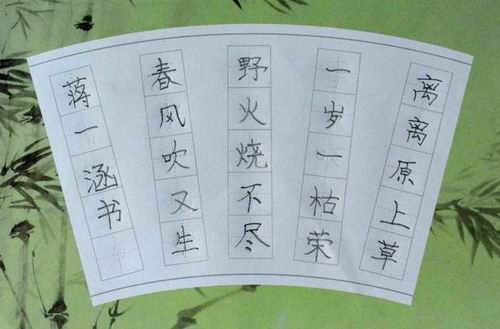 离离原上草
一岁一枯荣
野火烧不尽
春风吹又生
蒋一涵书